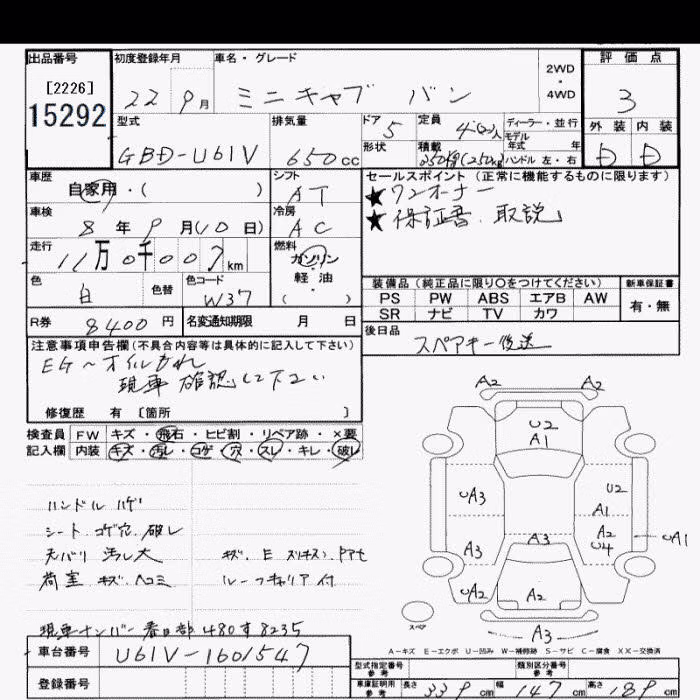 出品番号 初度登録年月 車名・グレード 評価点
[2226]
15292
22 9月 ミニキャブ バン
2WD
・
4WD
3
型式 排気量 ドア 定員 ディーラー・並行 外装 内装
モデル
年式 年
GBD-U61V 650cc 5 4(2)人 D D
形状 積載 ハンドル 左・右
250kg(250kg)
車歴 シフト セールスポイント(正常に機能するものに限ります)
自家用・( ) AT
★ワンオーナー
★保証書、取説
車検 冷房
8年9月(10日) AC
走行 燃料
11万0千007km ガソリン
軽油
( )
色 色替 色コード
白 W37
装備品(純正品に限り〇をつけてください) 新車保証書
PS PW ABS エアB AW
SR ナビ TV カワ
有・無
R券 8400円 名変通知期限 月 日
後日品 スペアキー後送
注意事項申告欄(不具合内容等は具体的に記入して下さい)
EG〜オイルもれ
現車確認して下さい
修復歴 有 [箇所 ]
検査員 FW キズ・飛石・ヒビ割・リペア跡・×要
記入欄 内装 キズ・汚レ・コゲ・穴・スレ・キレ・破レ
ハンドル ハゲ
シート、コゲ穴、破レ
天バリ 汚レ大
荷室 キズ、ヘコミ
キズ、E
ルーフキャリア付
現車ナンバー 春日部480す8235
車台番号 U61V-1601547
登録番号
A2 A2
U2
A1
UA3 U2
A1
A3 A3 A2
U4
UA1
UA2 A2
A3
スペア
A-キズ E-エクボ U-凹み W-補修跡 S-サビ C-腐食 XX-交換済
型式指定番号
参考
類別区分番号
参考
車庫証明用
参考
長さ 339cm 幅 147cm 高さ 189cm